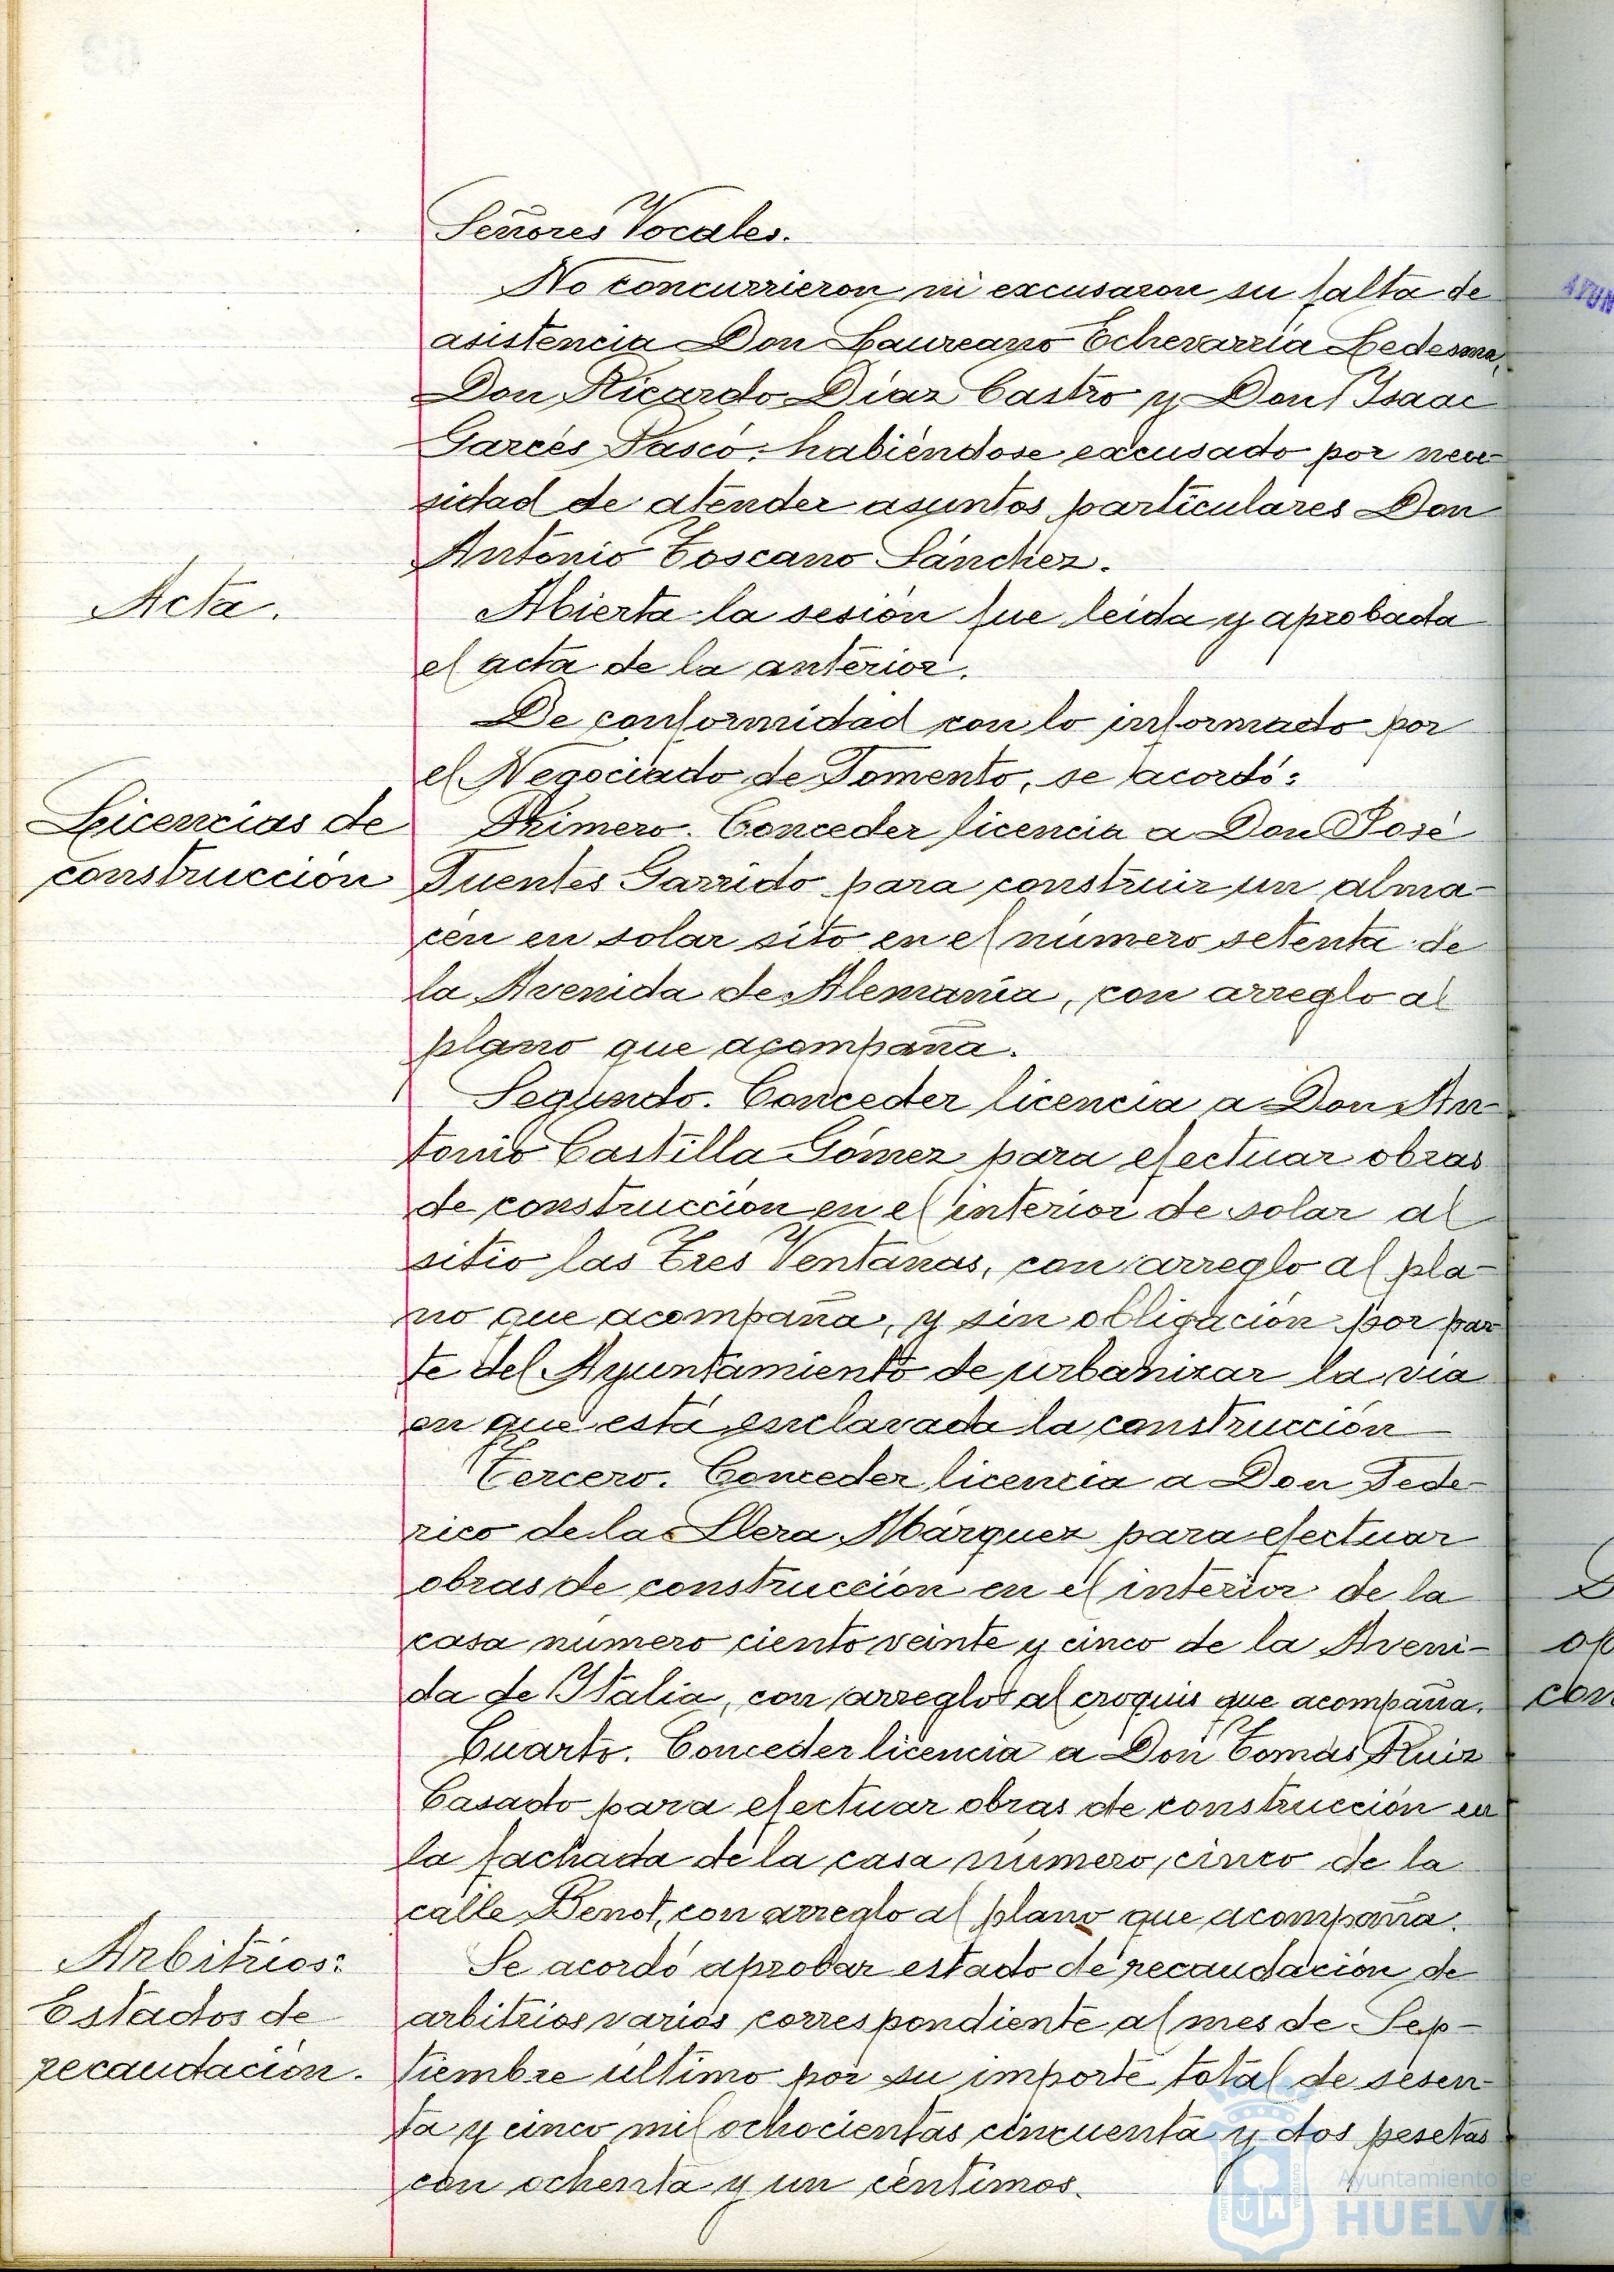 Señores Vocales.
No concurrieron ni excusaron su falta de
asistencia Don Laureano Echevarría Ledesma,
Don Ricardo Díaz Castro y Don Isaac
Garcés Pascó, habiéndose excusado por nece-
sidad de atender asuntos particulares Don
Antonio Toscano Sánchez.
Acta.
Abierta la sesión fue leída y aprobada
el acta de la anterior.
De conformidad con lo informado por
el Negociado de Fomento, se acordó:
Licencias de
construcción
Primero. Conceder licencia a Don José
Fuentes Garrido para construir un alma-
cén en solar sito en el número setenta de
la Avenida de Alemania, con arreglo al
plano que acompaña.
Segundo. Conceder licencia a Don An-
tonio Castilla Gómez para efectuar obras
de construcción en el interior de solar al
sitio las Tres Ventanas, con arreglo al pla-
no que acompaña, y sin obligación por par-
te del Ayuntamiento de urbanizar la vía
en que está enclavada la construcción
Tercero. Conceder licencia a Don Fede-
rico de la Llera Márquez para efectuar
obras de construcción en el interior de la
casa número ciento veinte y cinco de la Aveni-
da de Italia, con arreglo al croquis que acompaña.
Cuarto. Conceder licencia a Don Tomás Ruiz
Casado para efectuar obras de construcción en
la fachada de la casa número cinco de la
calle Benot, con arreglo al plano que acompaña.
Arbitrios:
Estados de
recaudación.
Se acordó aprobar estado de recaudación de
arbitrios varios correspondiente al mes de Sep-
tiembre último por su importe total de sesen-
ta y cinco mil ochocientas cincuenta y dos pesetas
con ochenta y un céntimos.
Ayuntamiento de
HUELVA